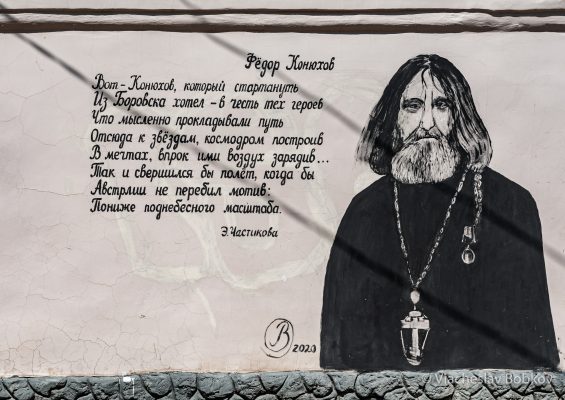 Фёдор Конюхов
Вот - Конюхов, который стартануть
Из Боровска хотел - в честь тех героев
Что мысленно прокладывали путь
Отсюда к звёздам, космодром построив
В мечтах, впрок ими воздух зарядив...
Так и свершился бы полёт, когда бы
Австрлии не перебил мотив:
Пониже поднебесного масштаба.
Э.Частикова
В
2020
© Viacheslav Bobkov